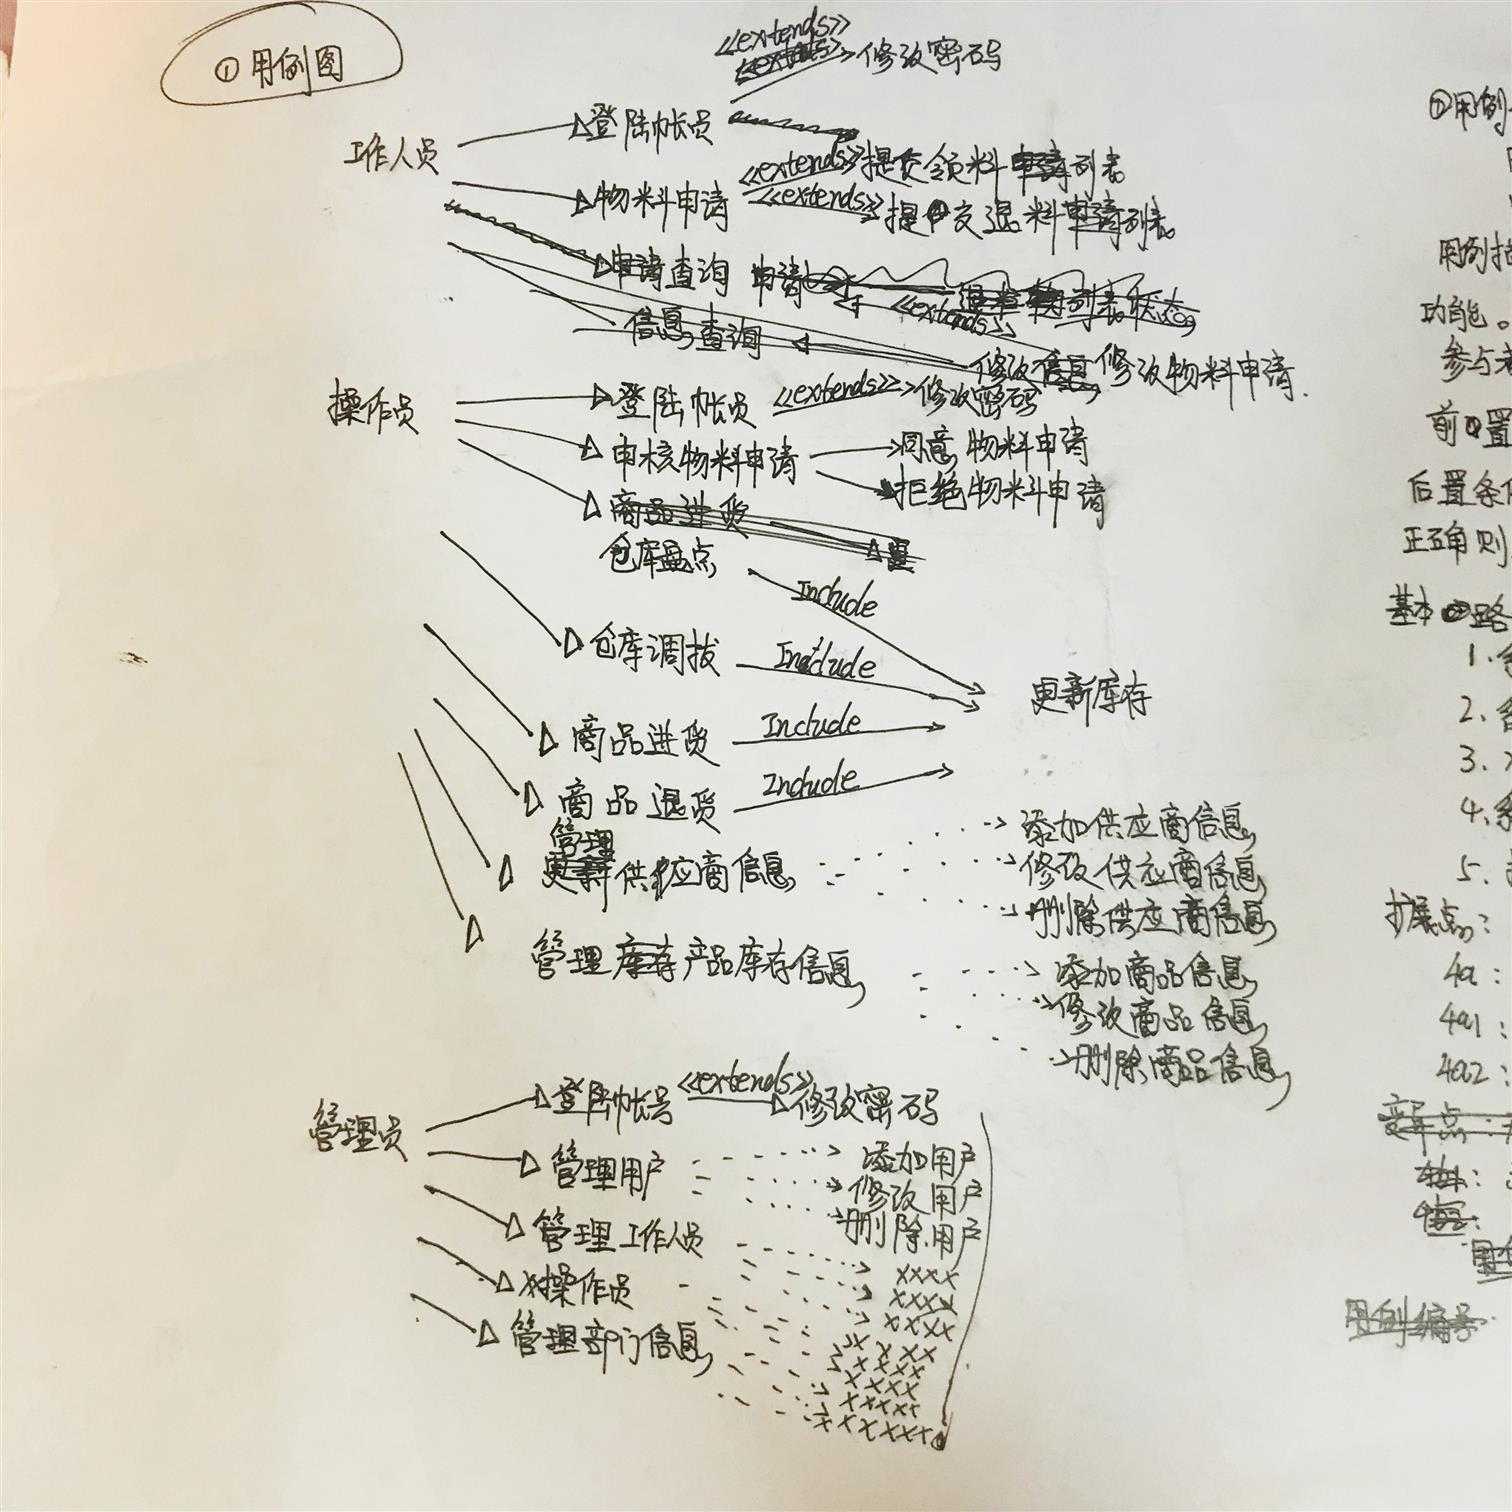 ①用例图
<<extends>>
修改密码
工作人员
登陆帐员
物料申请
<<extends>>提交领料申请列表
<<extends>>提交退料申请列表
申请查询 申请
<<extends>>
信息查询
修改信息 修改物料申请.
操作员
登陆帐员 <<extends>> 修改密码
审核物料申请
同意物料申请
拒绝物料申请
商品进货
仓库盘点
Include
仓库调拔 Include
更新库存
商品进货 Include
商品退货 Include
管理
更新供应商信息
添加供应商信息
修改供应商信息
删除供应商信息
管理库存产品库存信息
添加商品信息
修改商品信息
删除商品信息
管理员
登陆帐号 <<extends>> 修改密码
管理用户
添加用户
修改用户
删除用户
管理工作人员
xxxx
xxxx
x操作员
xxxx
管理部门信息
xxxx
xxxx
xxxx
xxxxx
xxxxxxx
①用例
用例描
功能。
参与者
前置
后置条件
正五角则
基本路
1.
2.
3.
4.系
5.
扩展点:
4a:
4a1:
4a2:
用例编号